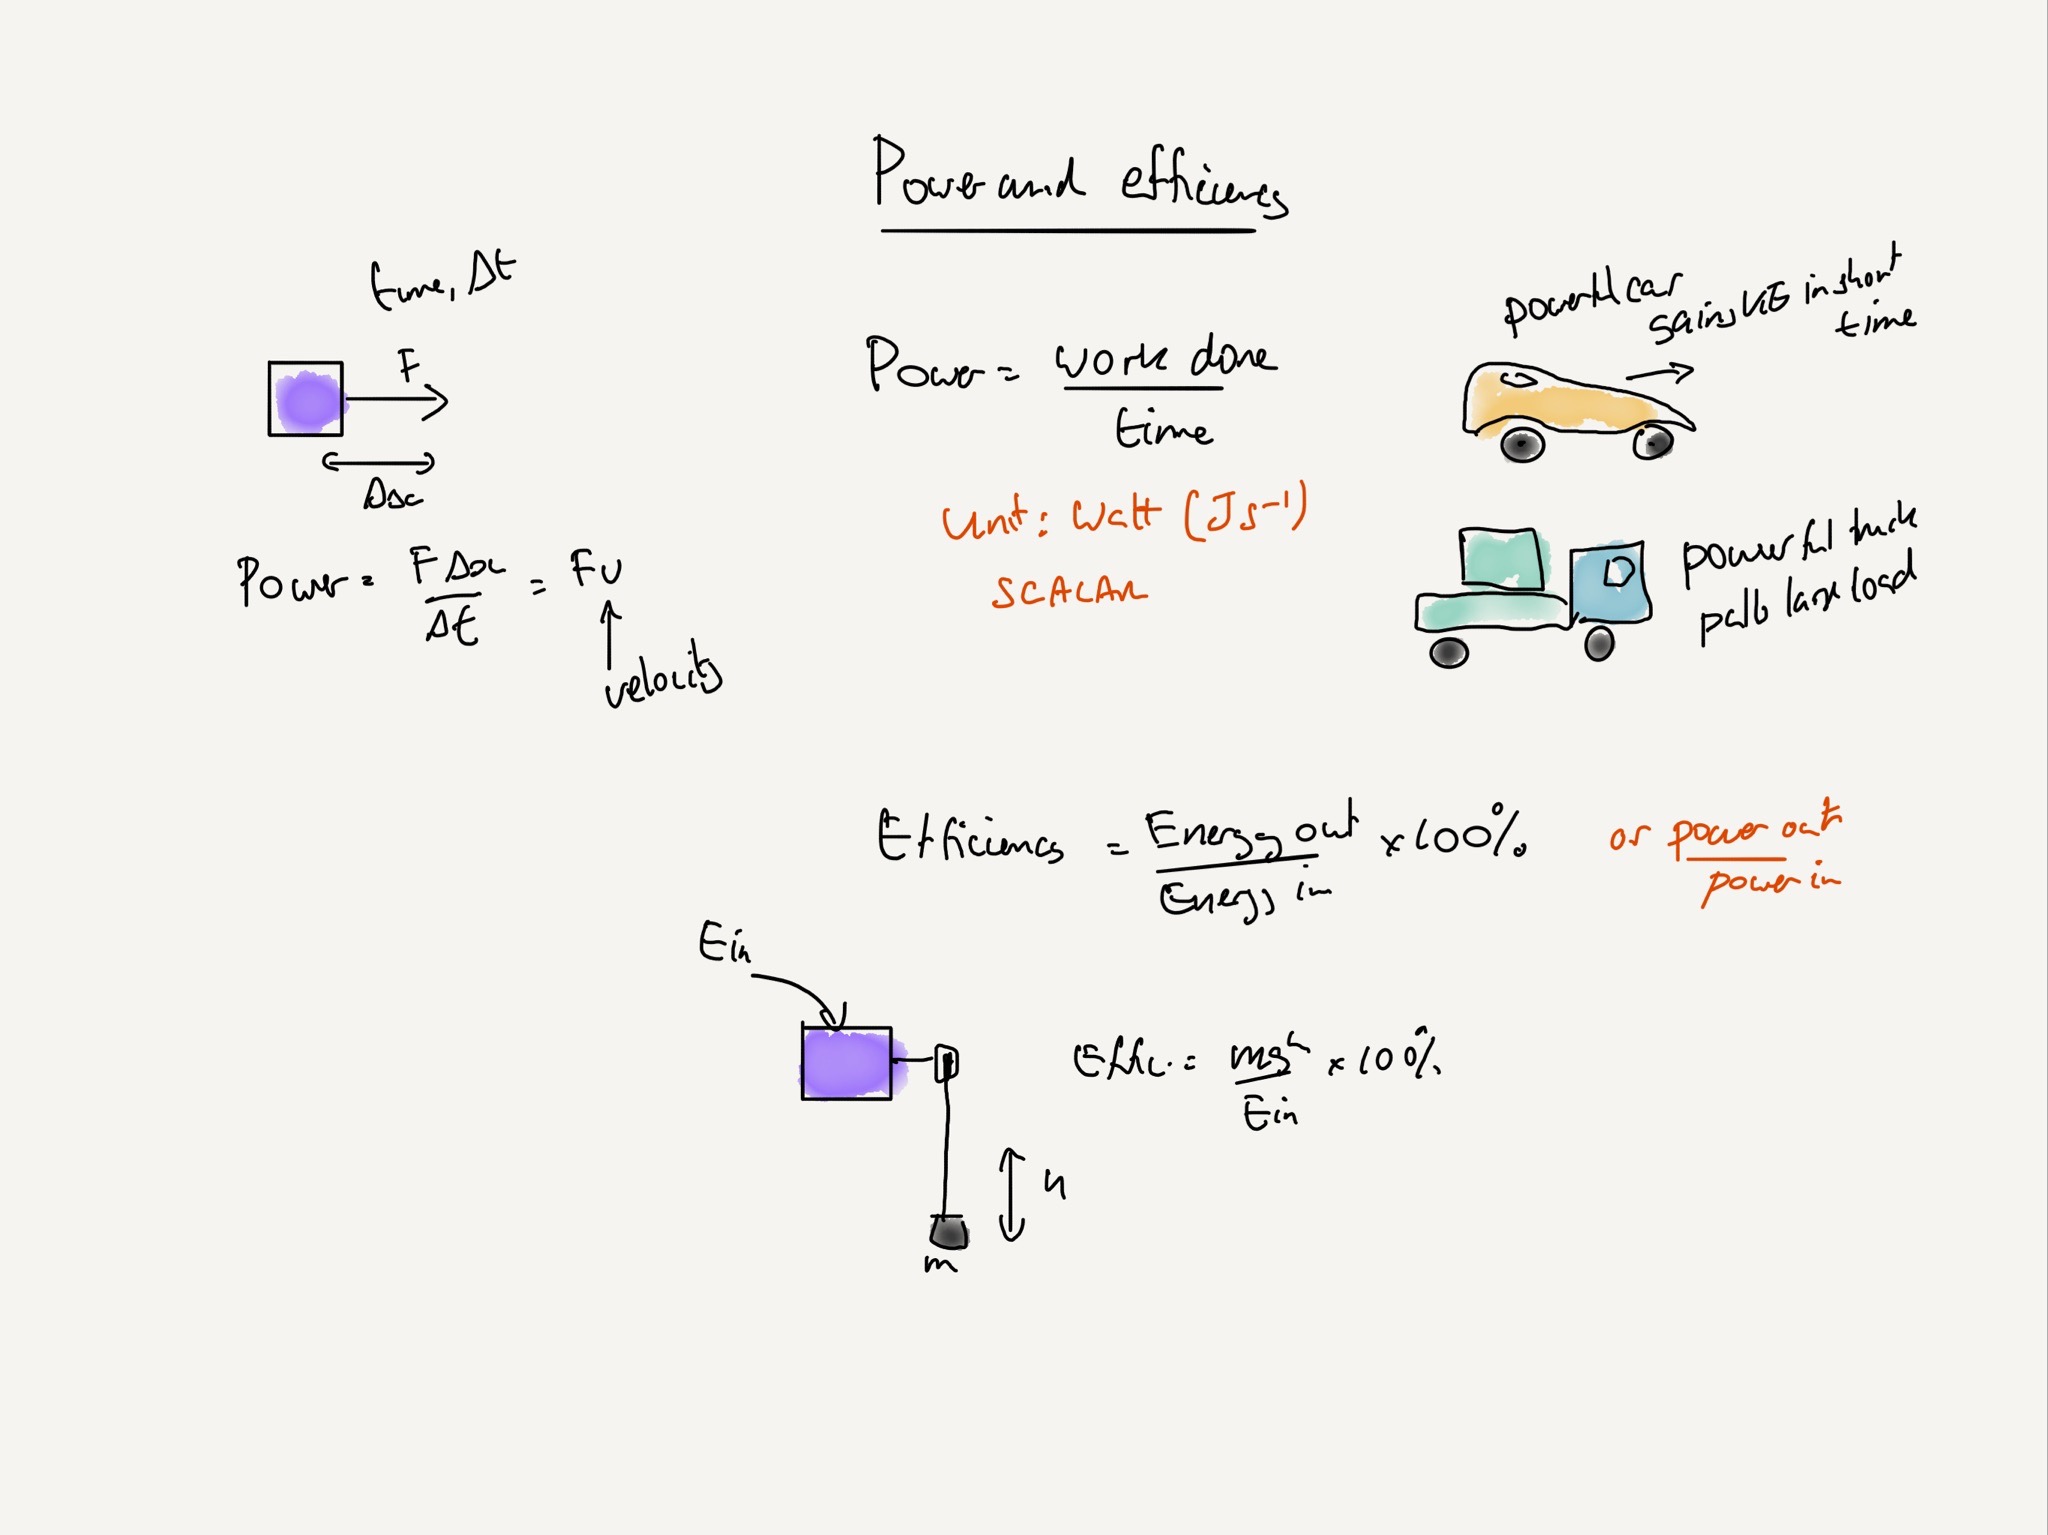 Power and efficiency
time, Δt
F
Δx
Power = FΔx / Δt = Fv
velocity
Power = work done / time
Unit: Watt (Js⁻¹)
SCALAR
powerful car
gains KE in short
time
powerful truck
pulls large load
Efficiency = Energy out / Energy in × 100%
or power out / power in
Ein
Effic. = mgh / Ein × 100%
h
m